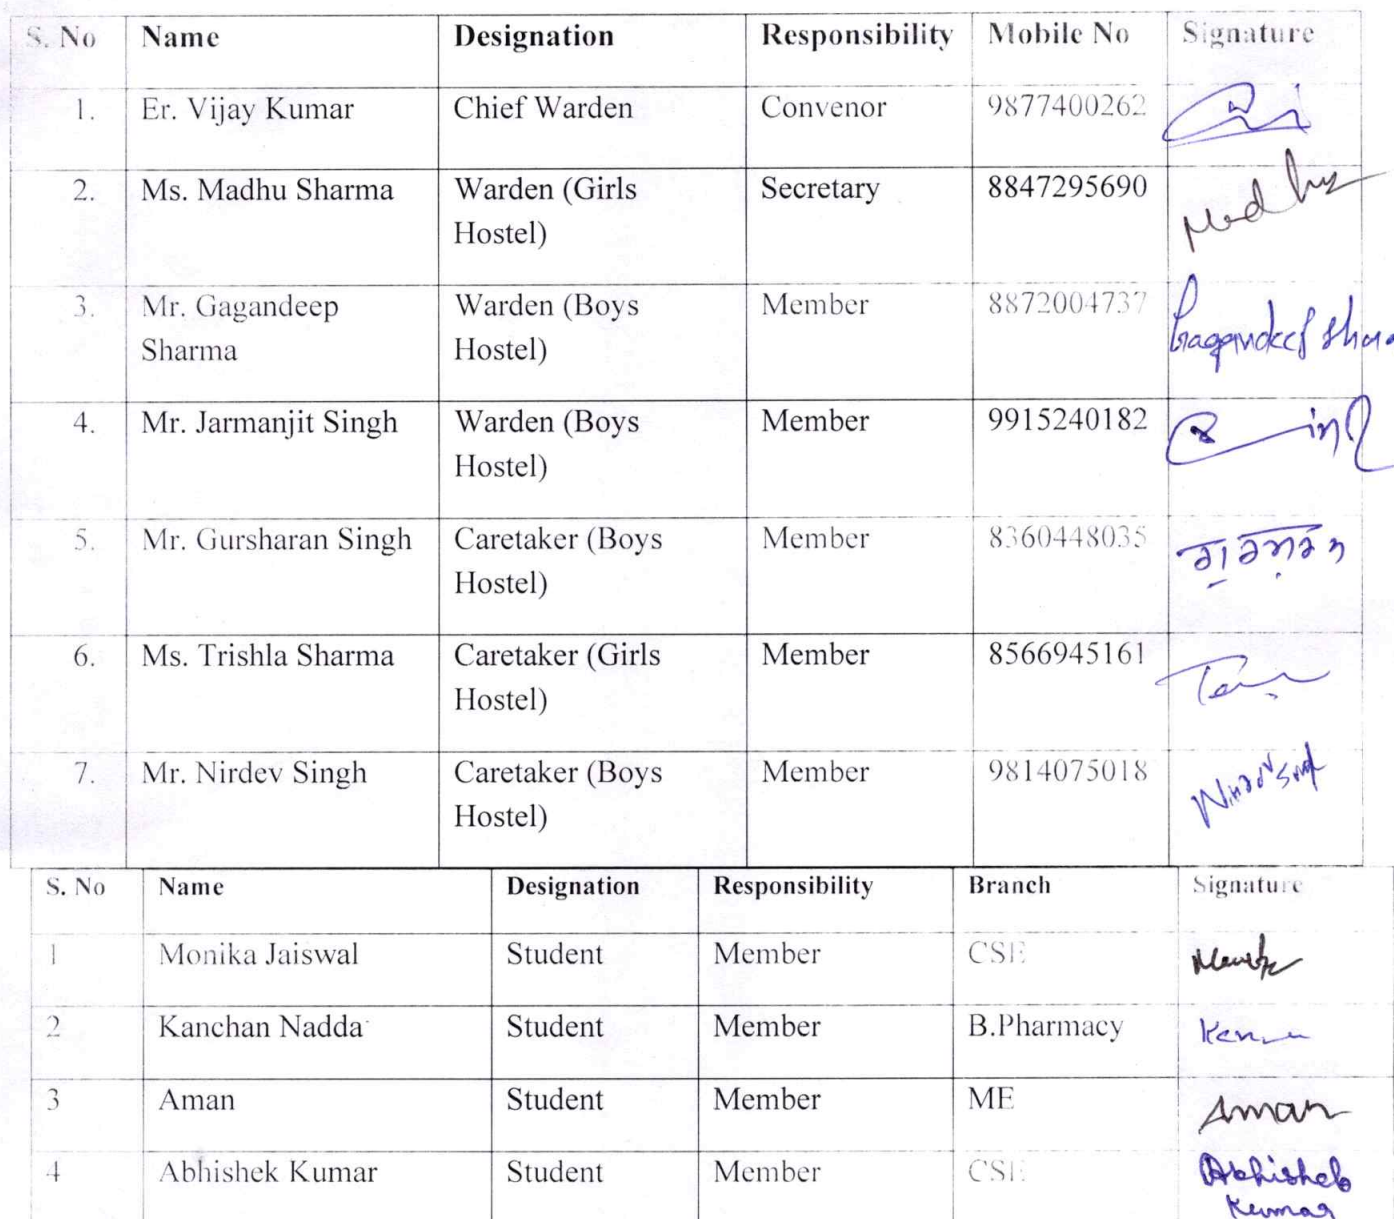 S. No Name Designation Responsibility Mobile No Signature
1. Er. Vijay Kumar Chief Warden Convenor 9877400262
2. Ms. Madhu Sharma Warden (Girls Secretary 8847295690 Madhu
Hostel)
3. Mr. Gagandeep Warden (Boys Member 8872004737 Gagandeep Shar
Sharma Hostel)
4. Mr. Jarmanjit Singh Warden (Boys Member 9915240182
Hostel)
5. Mr. Gursharan Singh Caretaker (Boys Member 8360448035
Hostel)
6. Ms. Trishla Sharma Caretaker (Girls Member 8566945161
Hostel)
7. Mr. Nirdev Singh Caretaker (Boys Member 9814075018
Hostel)
S. No Name Designation Responsibility Branch Signature
1 Monika Jaiswal Student Member CSE
2 Kanchan Nadda Student Member B.Pharmacy
3 Aman Student Member ME Aman
4 Abhishek Kumar Student Member CSE Abhishek
Kumar